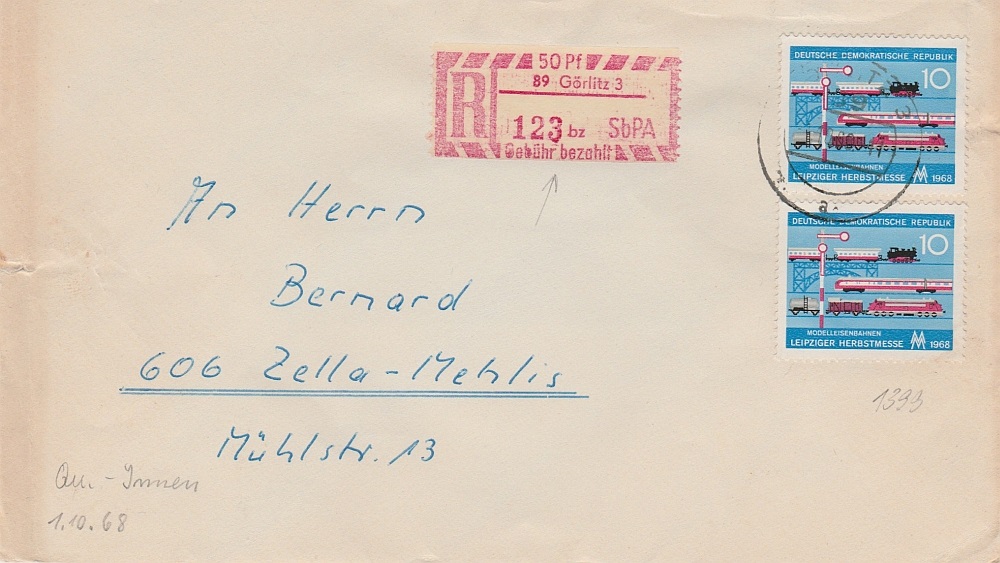 50 Pf
R
89 Görlitz 3
123 bz SbPA
Gebühr bezahlt
DEUTSCHE DEMOKRATISCHE REPUBLIK
10
MODELLEISENBAHNEN
LEIPZIGER HERBSTMESSE MM 1968
a
DEUTSCHE DEMOKRATISCHE REPUBLIK
10
MODELLEISENBAHNEN
LEIPZIGER HERBSTMESSE MM 1968
An Herrn
Bernard
606 Zella-Mehlis
Mühlstr. 13
1399
Qu.-Innen
1.10.68